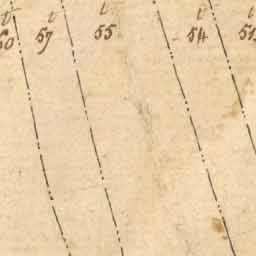 i i i i i
60 57 55 54 51